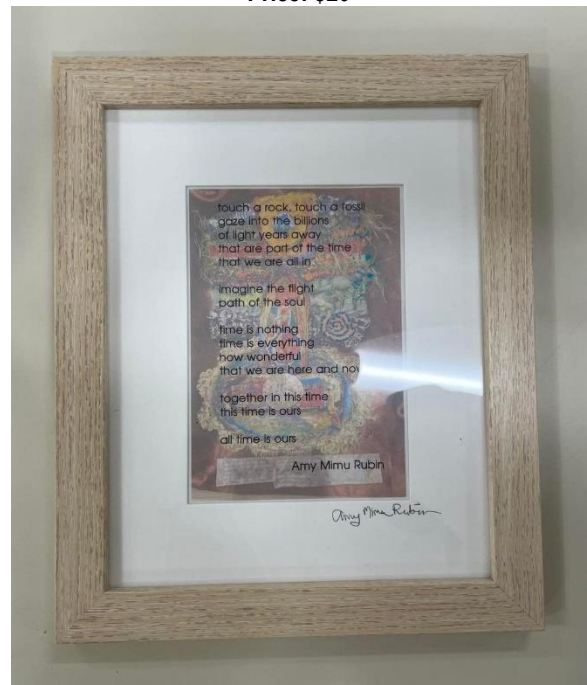 touch a rock, touch a fossil
gaze into the billions
of light years away
that are part of the time
that we are all in
imagine the flight
path of the soul
time is nothing
time is everything
how wonderful
that we are here and now
together in this time
this time is ours
all time is ours
Amy Mimu Rubin
Amy Mimu Rubin